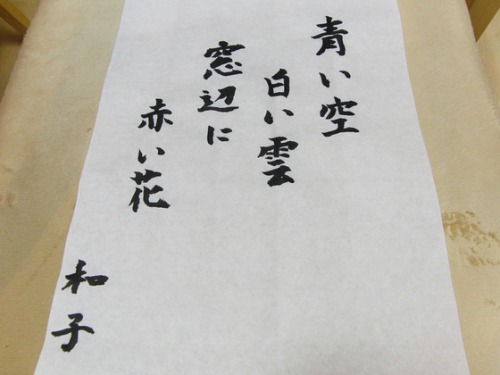 青い空
白い雲
窓辺に
赤い花
和子